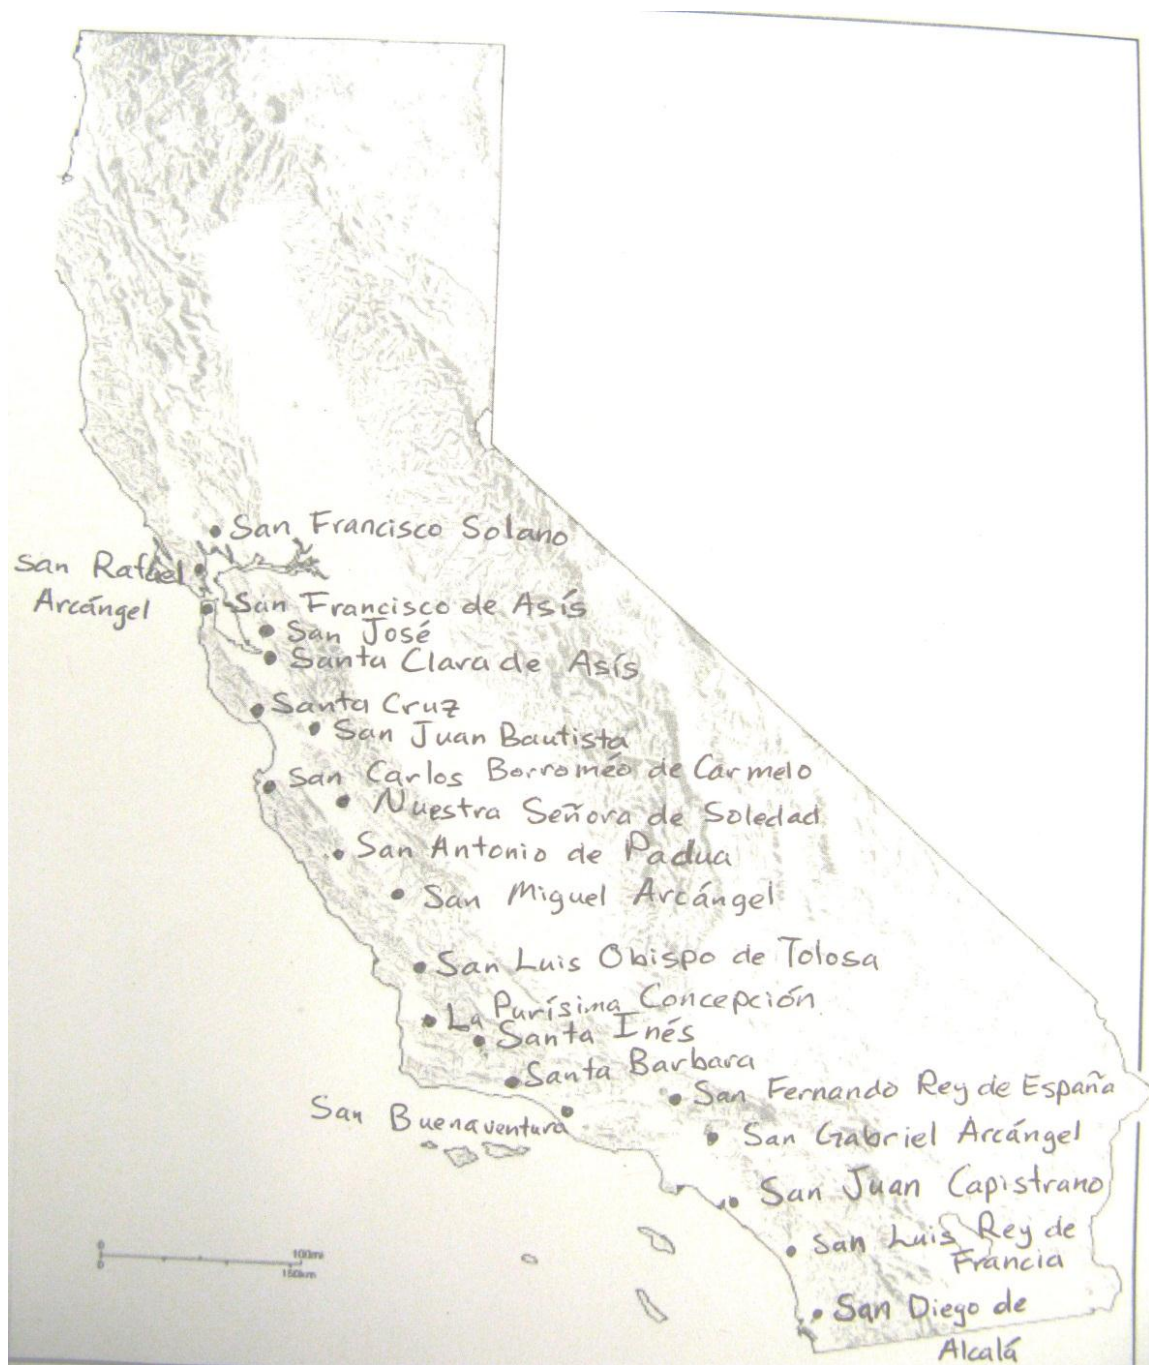 San Francisco Solano
San Rafael
Arcángel
San Francisco de Asís
San José
Santa Clara de Asís
Santa Cruz
San Juan Bautista
San Carlos Borroméo de Carmelo
Nuestra Señora de Soledad
San Antonio de Padua
San Miguel Arcángel
San Luis Obispo de Tolosa
La Purísima Concepción
Santa Inés
Santa Barbara
San Fernando Rey de España
San Buenaventura
San Gabriel Arcángel
San Juan Capistrano
San Luis Rey de
Francia
San Diego de
Alcalá
0 100mi
0 150km